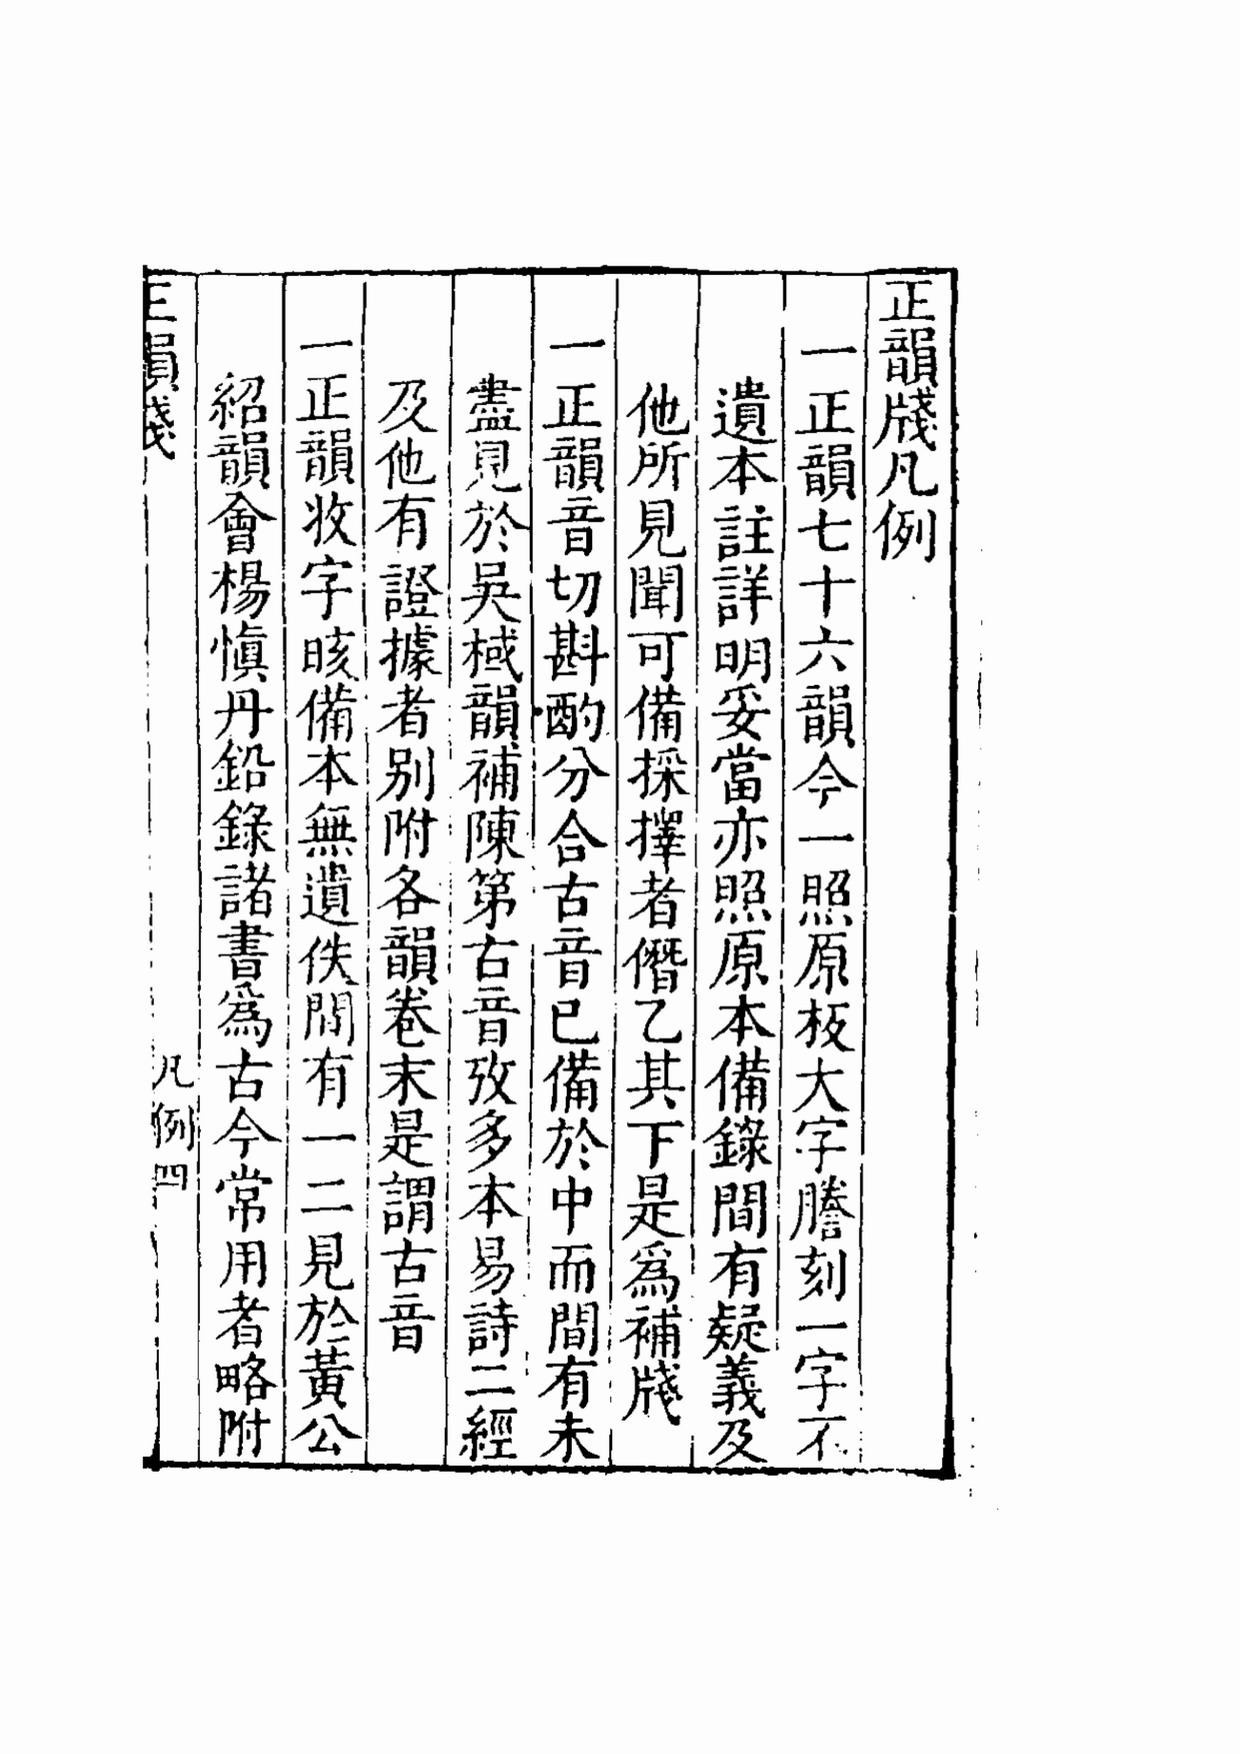 正韻牋凡例
一正韻七十六韻今一照原板大字謄刻一字不
遺本註詳明妥當亦照原本備錄間有疑義及
他所見聞可備採擇者僭乙其下是爲補牋
一正韻音切斟酌分合古音已備於中而間有未
盡見於吳棫韻補陳第古音攷多本易詩二經
及他有證據者别附各韻卷末是謂古音
一正韻收字晐備本無遺佚間有一二見於黃公
紹韻會楊愼丹鉛錄諸書爲古今常用者略附
正韻牋
凡例四